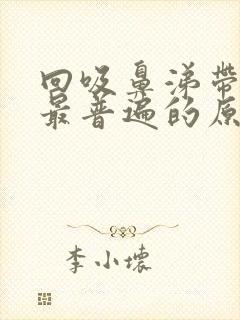 回吸鼻涕带
最普遍的原
李小壞